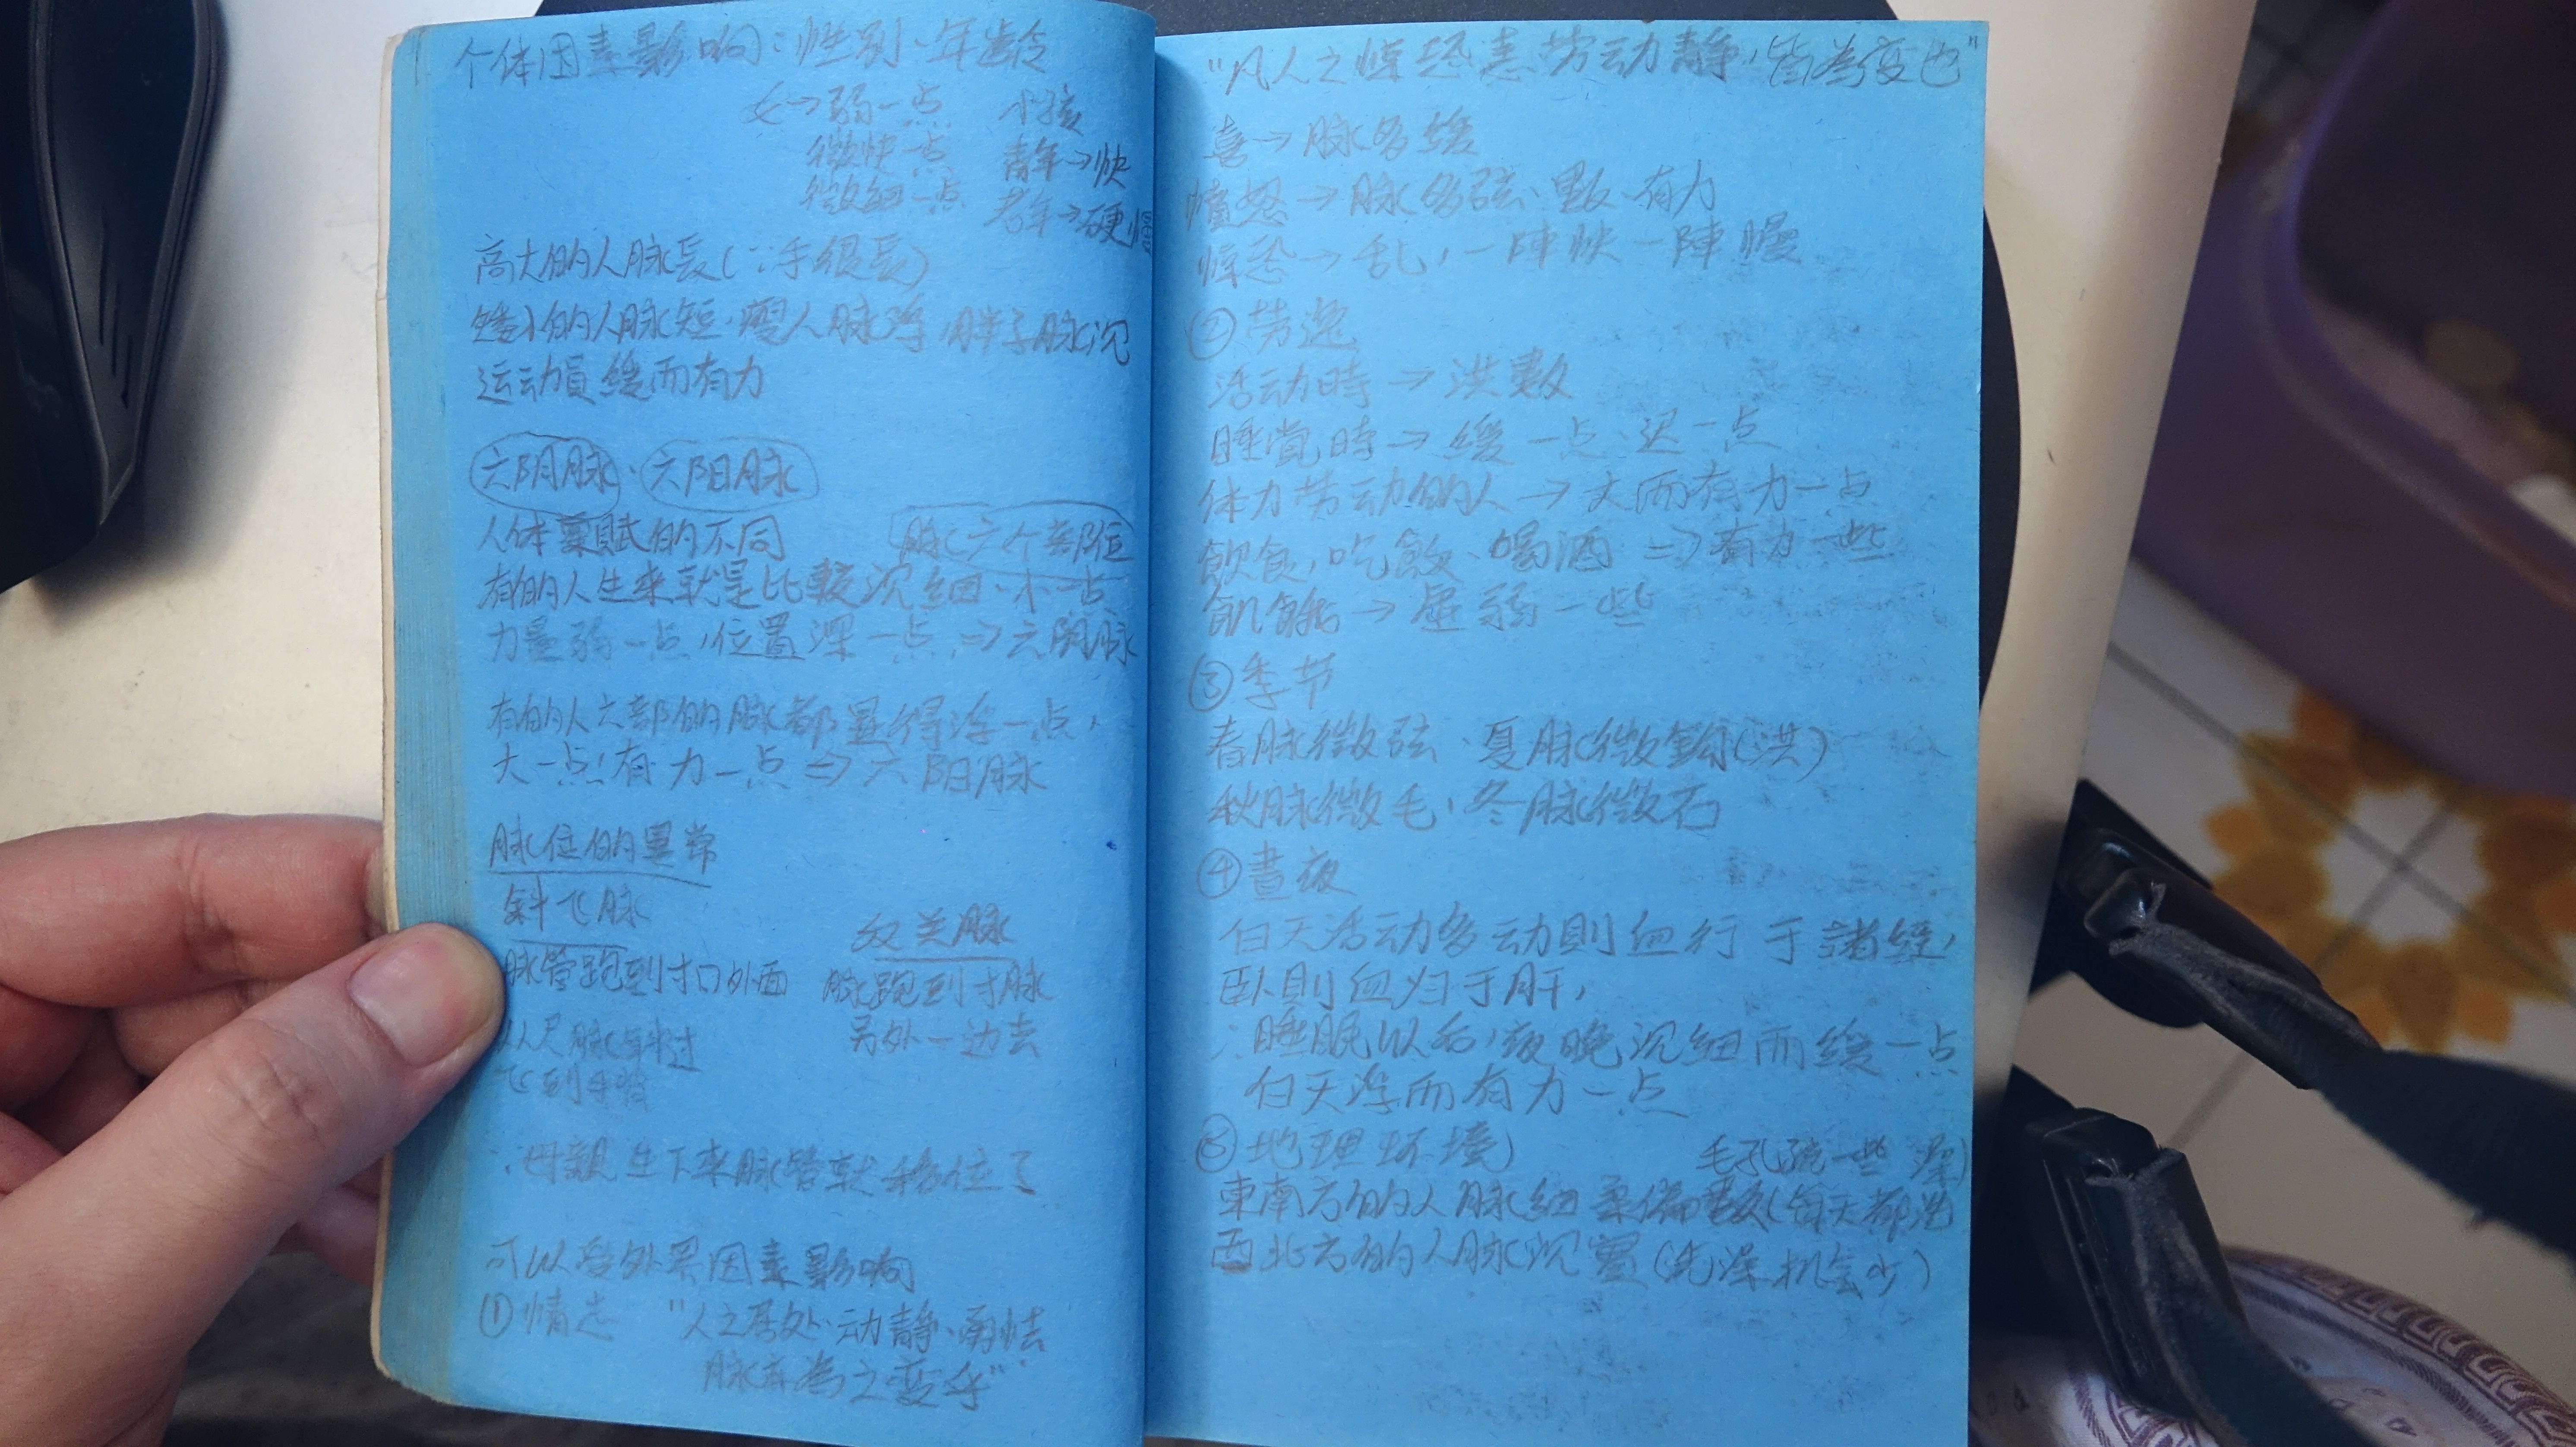 个体因素影响：性别、年龄
女→弱一点 小孩
微快一点 青年→快
微细一点 老年→硬
高大的人脉長(∵手很長)
矮小的人脉短、瘦人脉浮,胖子脉沉
运动員緩而有力
六阴脉、六阳脉
人体稟賦的不同 脉六个部位
有的人生来就是比較沉細、小一点
力量弱一点,位置深一点⇒六阴脉
有的人六部的脉都显得浮一点、
大一点、有力一点⇒六阳脉
脉位的異常
斜飞脉 反关脉
脉管跑到寸口外面 脉跑到寸脉
从尺脉斜过 另外一边去
飞到手背
∴母親生下来脉管就移位了
可以受外界因素影响
①情志 "人之居处、动静、勇怯
脉亦為之变乎"
"凡人之惊恐恚劳动静,皆為变也"
喜→脉多緩
憤怒→脉多弦、數、有力
惊恐→乱,一陣快一陣慢
②劳逸
活动時→洪數
睡覚時→緩一点、迟一点
体力劳动的人→大而有力一点
飲食,吃飯、喝酒⇒有力一些
飢餓→虚弱一些
③季节
春脉微弦、夏脉微鉤(洪)
秋脉微毛,冬脉微石
④晝夜
白天活动多动則血行于諸經,
臥則血归于肝,
∴睡眠以后,夜晚沉細而緩一点
白天浮而有力一点
⑤地理环境 毛孔疏一些 澡)
東南方的人脉細柔偏數(每天都洗
西北方的人脉沉實(洗澡机会少)